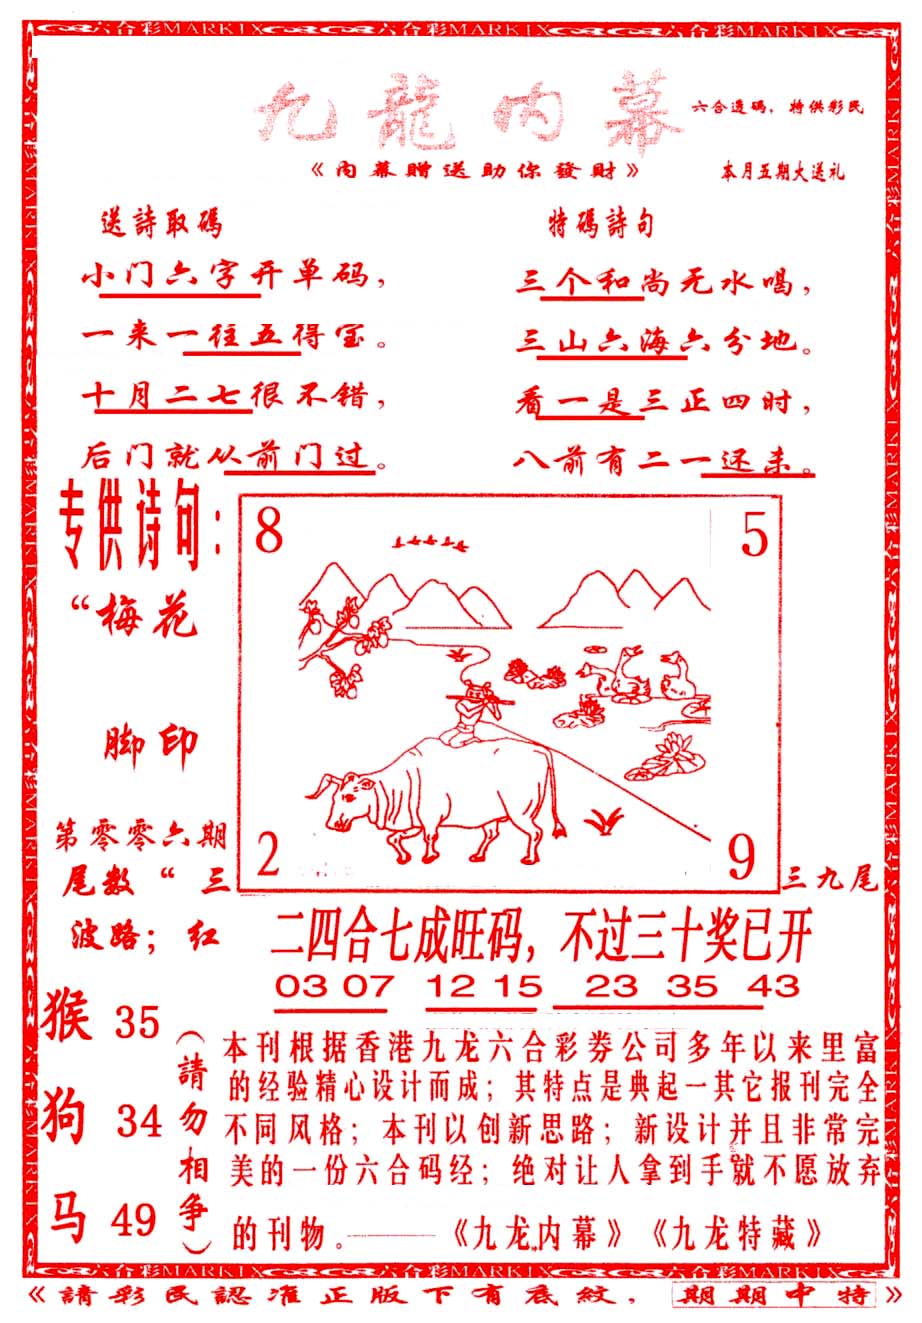 六合彩MARKIX 六合彩MARKIX 六合彩MARKIX
九龍内幕
六合透碼，特供彩民
《内幕贈送助你發財》
本月五期大送礼
送詩取碼
小门六字开单码，
一来一往五得宝。
十月二七很不错，
后门就从前门过。
特碼詩句
三个和尚无水喝，
三山六海六分地。
看一是三正四时，
八前有二一还未。
专供诗句：
“梅花
脚印
8
5
2
9
第零零六期
尾数“三
三九尾
波路；红
二四合七成旺码，不过三十奖已开
03 07 12 15 23 35 43
猴 35
狗 34
马 49
（請勿相争）
本刊根据香港九龙六合彩券公司多年以来里富
的经验精心设计而成；其特点是典起一其它报刊完全
不同风格；本刊以创新思路；新设计并且非常完
美的一份六合码经；绝对让人拿到手就不愿放弃
的刊物。———《九龙内幕》《九龙特藏》
六合彩MARKIX 六合彩MARKIX 六合彩MARKIX
《請彩民認准正版下有底紋，期期中特》